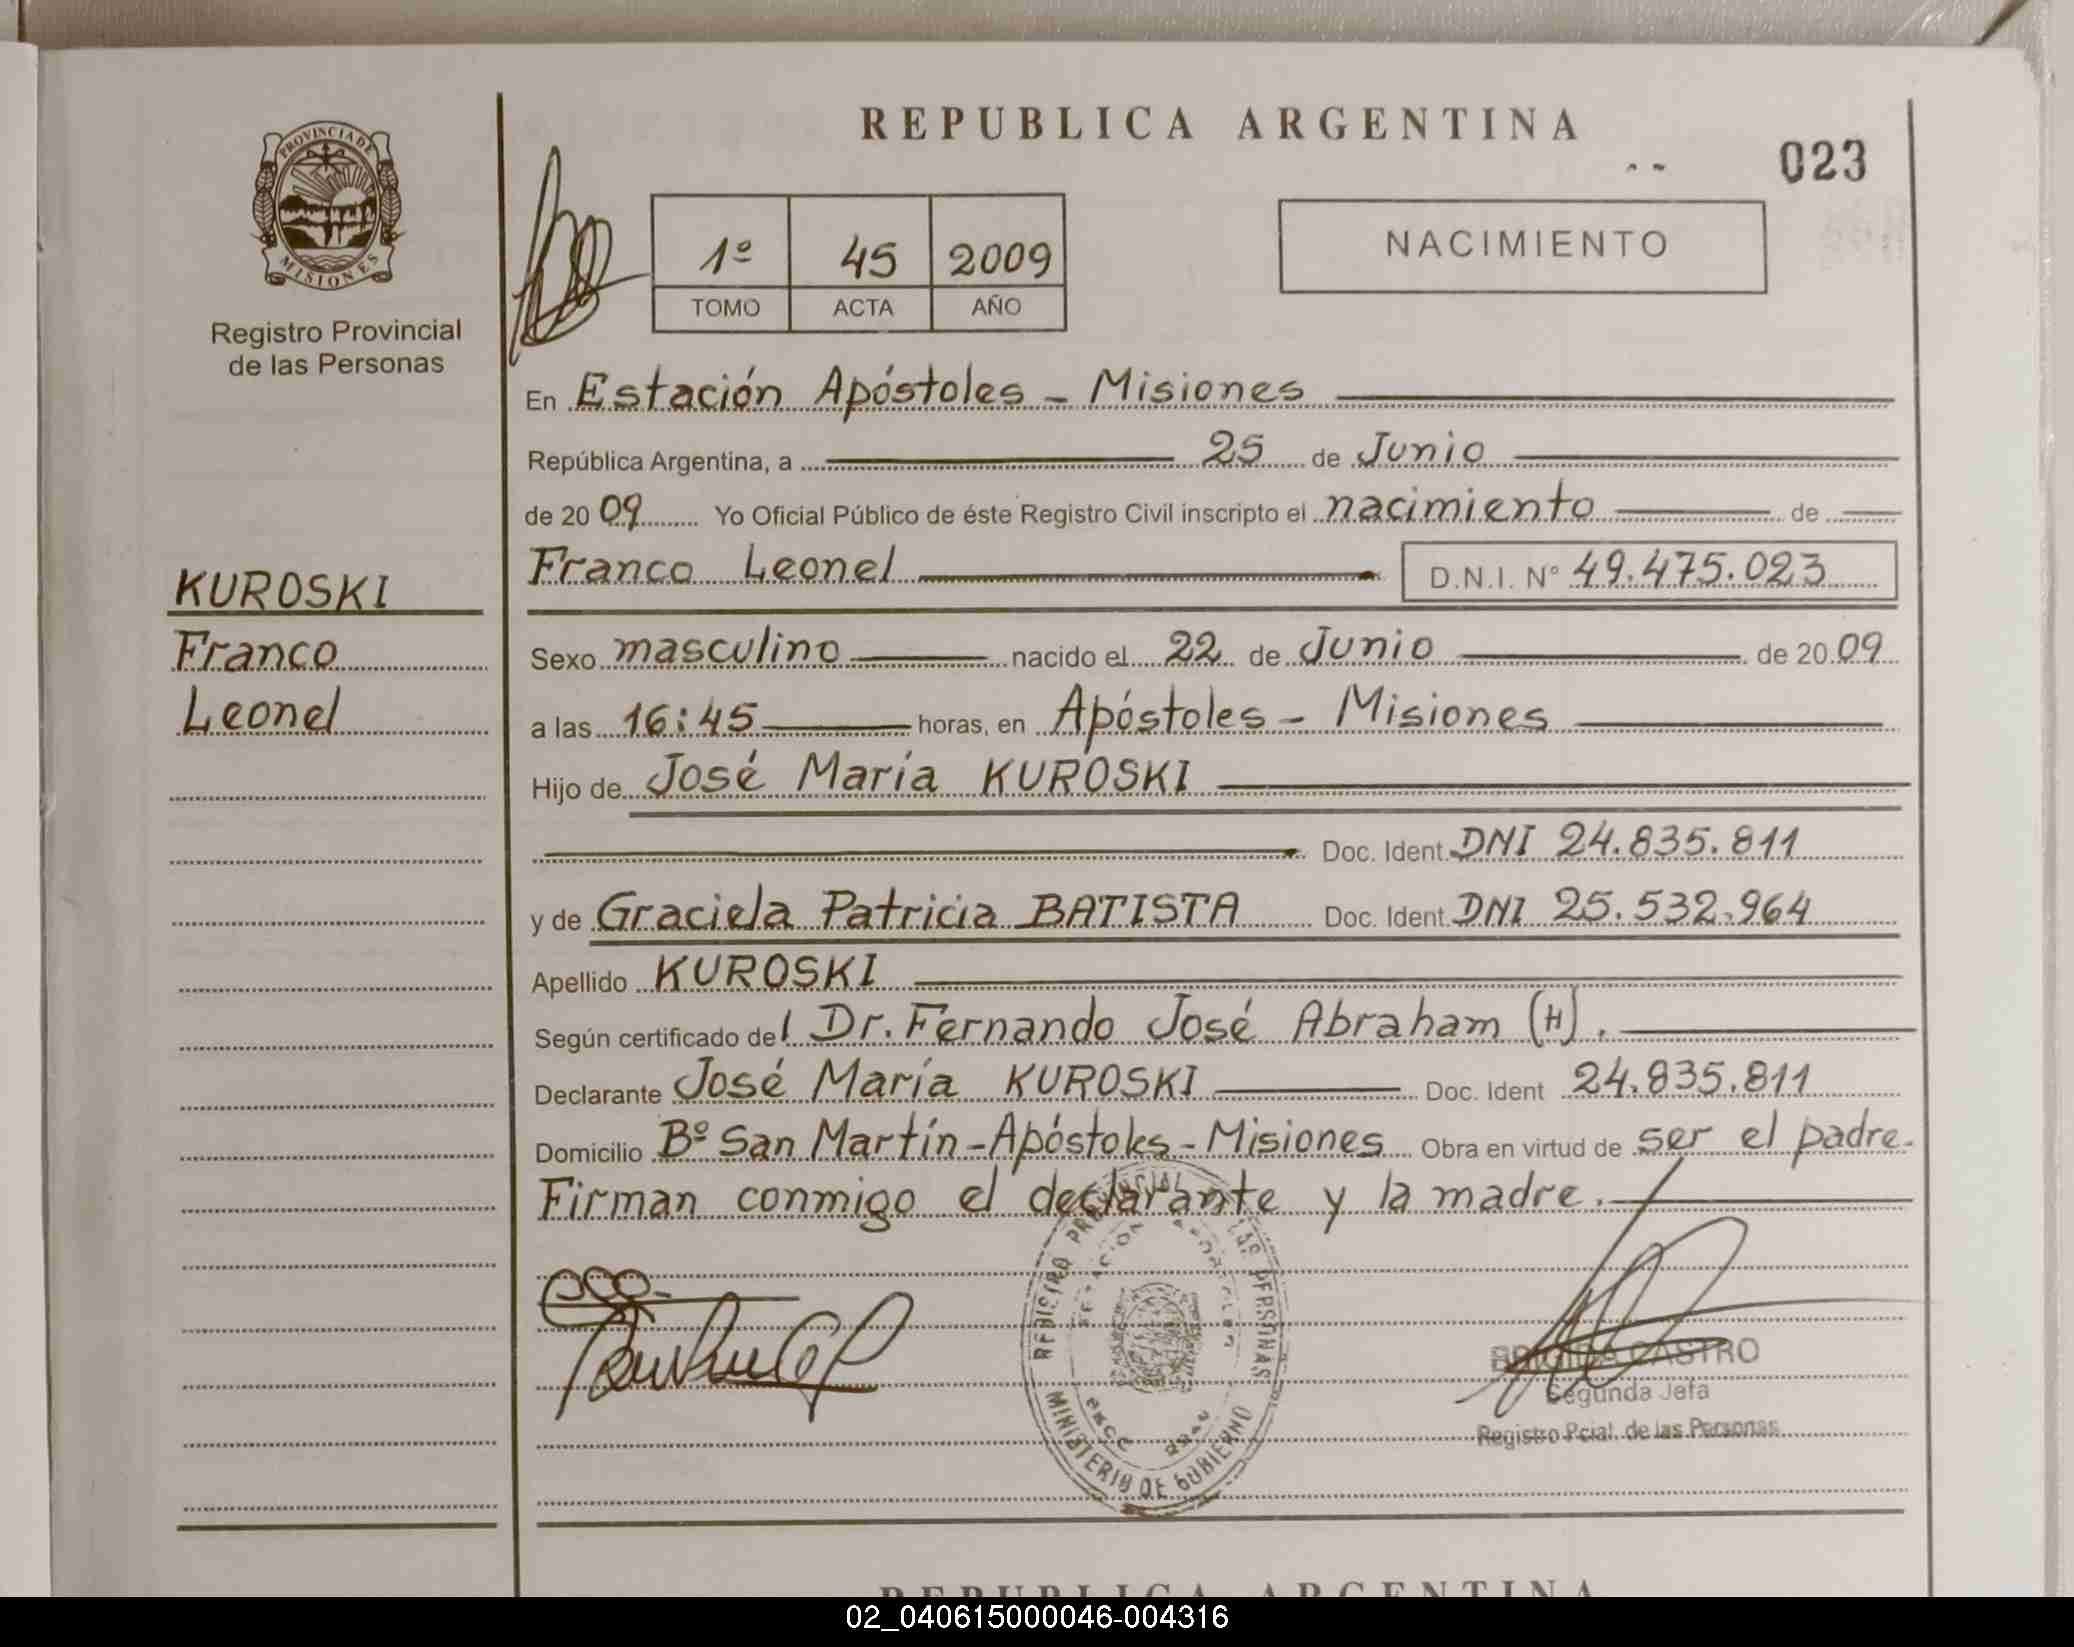 PROVINCIA DE
MISIONES
Registro Provincial
de las Personas
KUROSKI
Franco
Leonel
REPUBLICA ARGENTINA
023
1º 45 2009
TOMO ACTA AÑO
NACIMIENTO
En Estación Apóstoles - Misiones
República Argentina, a 25 de Junio
de 2009 Yo Oficial Público de éste Registro Civil inscripto el nacimiento de
Franco Leonel D.N.I. Nº 49.475.023
Sexo masculino nacido el 22 de Junio de 2009
a las 16:45 horas, en Apóstoles - Misiones
Hijo de José María KUROSKI
Doc. Ident. DNI 24.835.811
y de Graciela Patricia BATISTA Doc. Ident. DNI 25.532.964
Apellido KUROSKI
Según certificado del Dr. Fernando José Abraham (H).
Declarante José María KUROSKI Doc. Ident 24.835.811
Domicilio Bº San Martín - Apóstoles - Misiones Obra en virtud de ser el padre.
Firman conmigo el declarante y la madre.
REGISTRO PROVINCIAL LAS PERSONAS
MINISTERIO DE GOBIERNO
BRIGIDA CASTRO
Segunda Jefa
Registro Pcial. de las Personas
REPUBLICA ARGENTINA
02_040615000046-004316